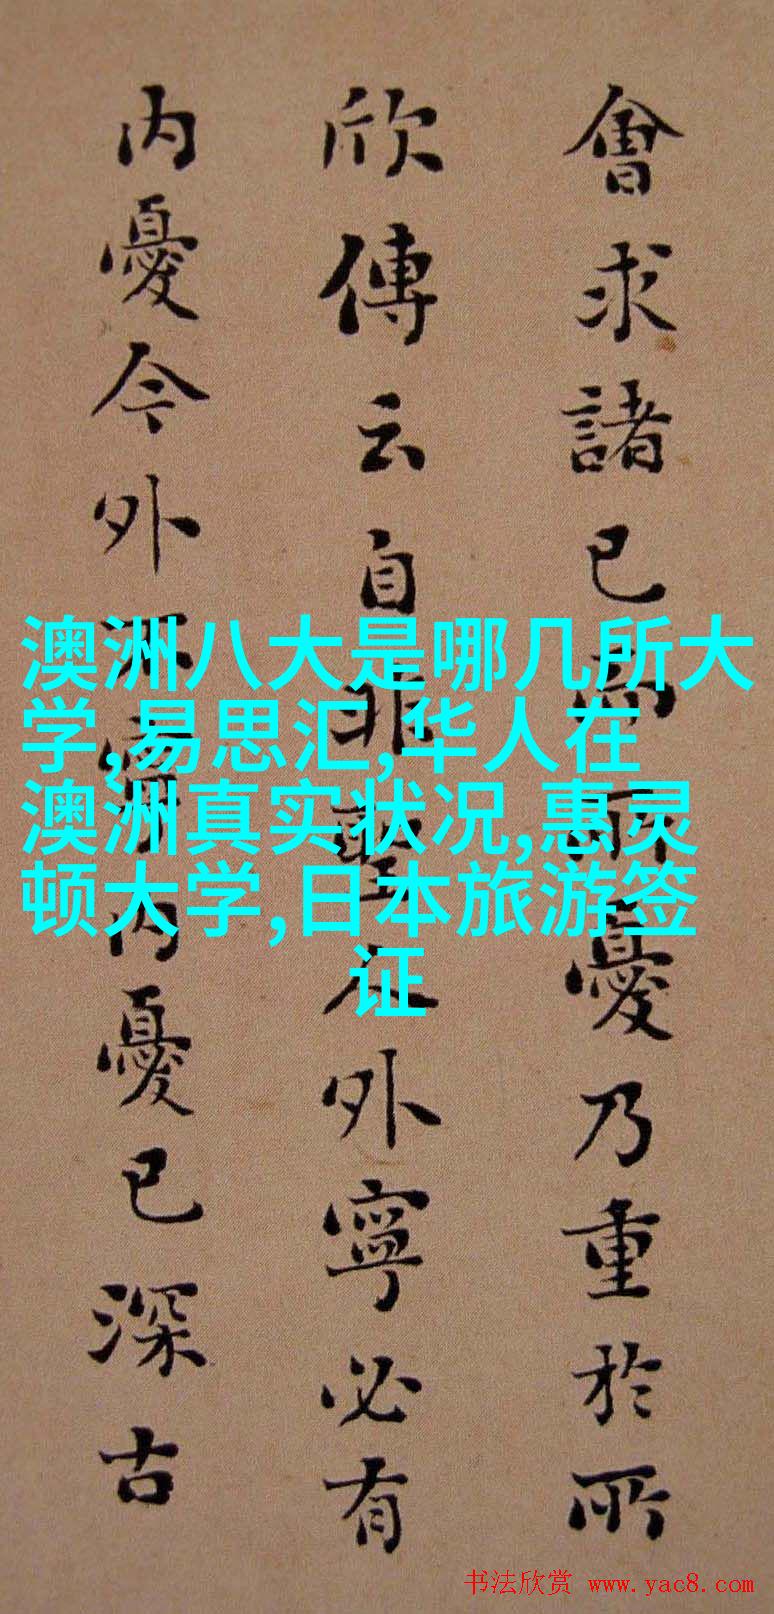 會求諸已而所憂乃重於所
欣傳云自非聖人外寧必有
内憂今外不寧内憂已深古
澳洲八大是哪几所大
学,易思汇,华人在
澳洲真实状况,惠灵
顿大学,日本旅游签
证
书法欣赏 www.yac8.com